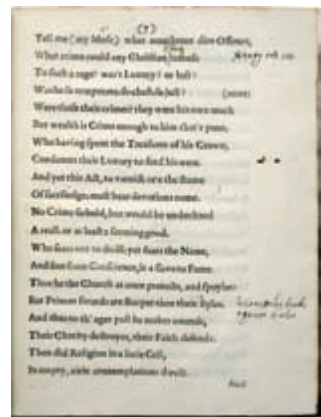 (7)
Tell me (my Muse) what monstrous dire Offence,
What crime could any Christian
To such a rage? was't Luxury? or lust?
Was he so temperate, so chast, so just?
(more:
Were these their crimes? they were his own much
But wealth is Crime enough to him that's poore,
Who having spent the Treasures of his Crown,
Condemns their Luxury to feed his own.
And yet this Act, to varnish o're the shame
Of sacriledge, must bear devotions name.
No Crime so bold, but would be understood
A reall, or at least a seeming good.
Who fears not to do ill, yet fears the Name,
And free from Conscience, is a slave to Fame.
Thus he the Church at once protects, and spoyles:
But Princes swords are sharper then their styles.
And thus to th' ages past he makes amends,
Their Charity destroyes, their Faith defends.
Then did Religion in a lazie Cell,
In empty, airie contemplations dwell;